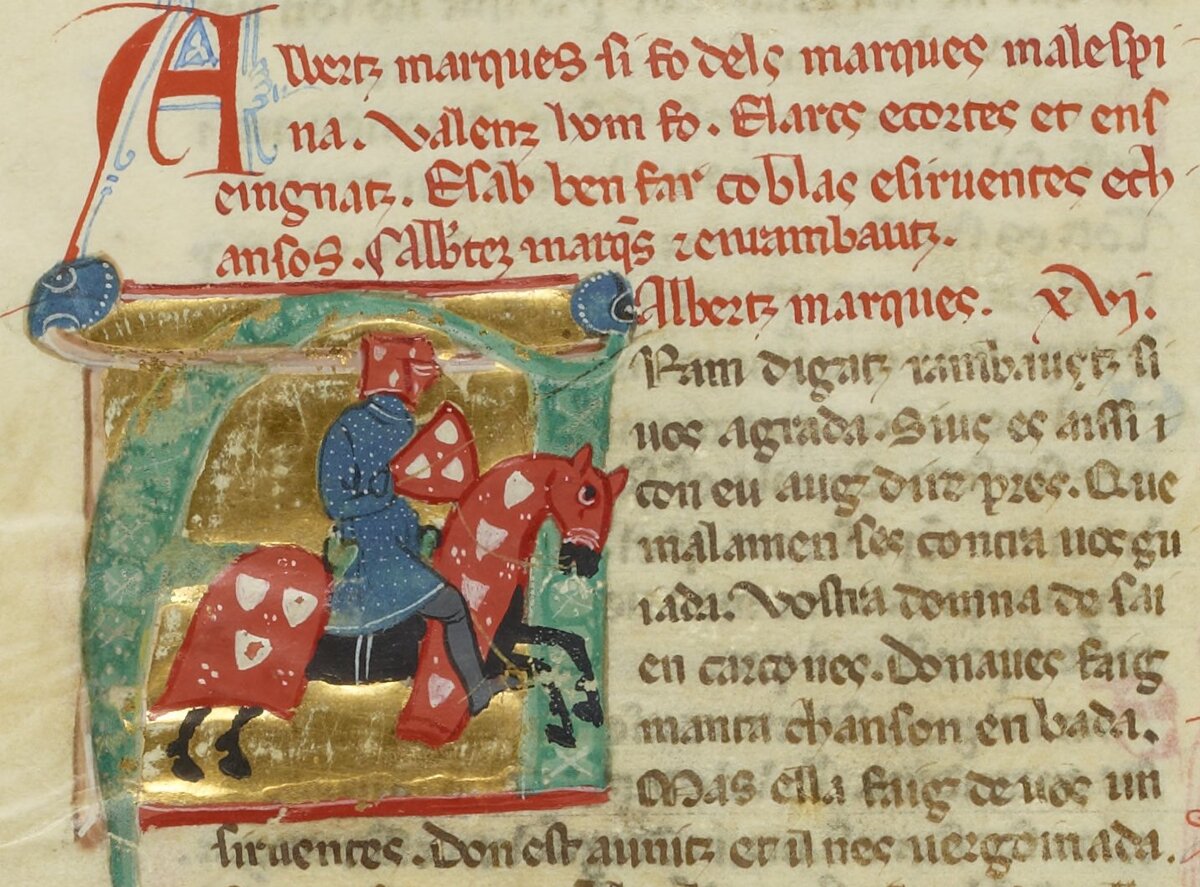 Albertz marques si fo dels marques malespi
na. Valenz hom fo. E larcs e cortes et ens
eingnatz. E sab ben far coblas e siruentes e ch
ansos. Albtez marqs
Albertz marques. XVI.
Ram digatz rambautz si
uos agrada. Si us es aissi
con eu aug dire pres. Que
malamen ses contra uos gu
iada. Vostra donna de sai
en carcones. Don aues faig
manta chanson en bada.
Mas ella faig de uos un
siruentes. Don est aunitz et il nes uergoinada.